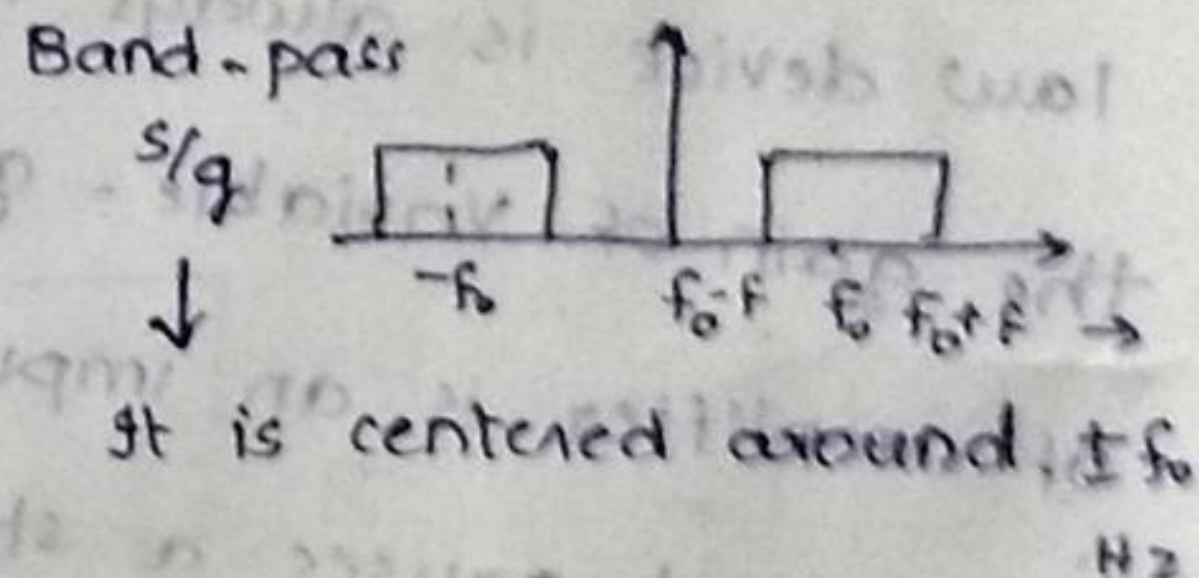 Band-pass
s/g
-f₀ f₀-f f₀ f₀+f
It is centered around ±f₀
Hz